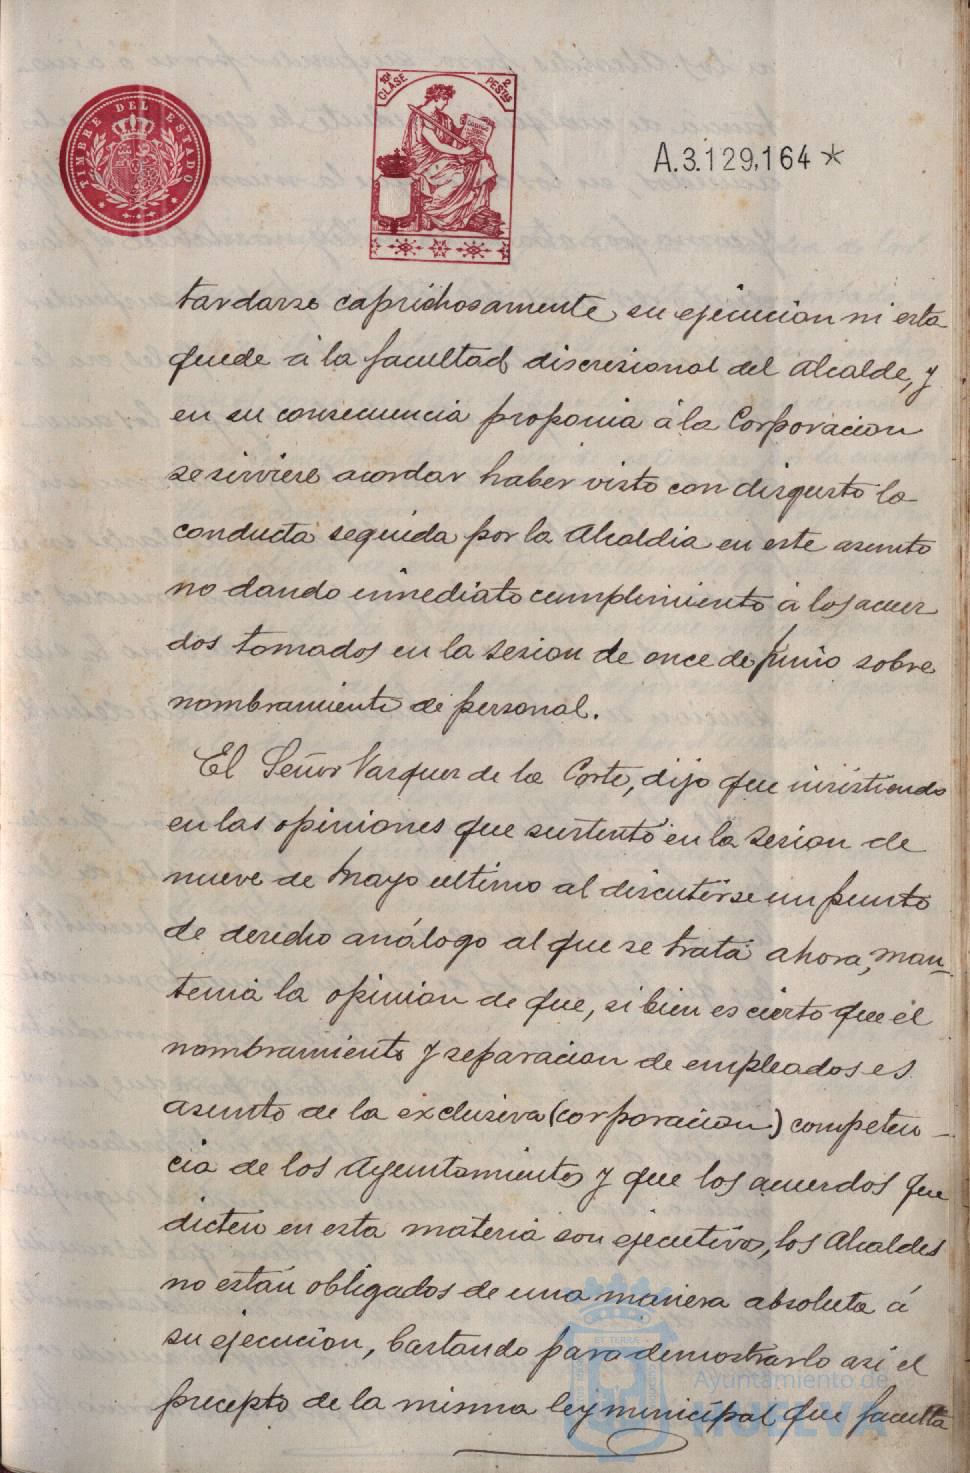 TIMBRE DEL ESTADO
10ª CLASE 2 PESETAS
A.3.129,164 *
tardarse caprichosamente su ejecucion ni esta
quede á la facultad discresional del Alcalde, y
en su consecuencia proponia á la Corporacion
se sirviese acordar haber visto con disgusto la
conducta seguida por la Alcaldia en este asunto
no dando inmediato cumplimiento á los acuer
dos tomados en la sesion de once de Junio sobre
nombramiento de personal.
El Señor Vazquez de la Corte, dijo que insistiendo
en las opiniones que sustentó en la sesion de
nueve de Mayo ultimo al discutirse un punto
de derecho análogo al que se trata ahora, man-
tenia la opinion de que, si bien es cierto que el
nombramiento y separacion de empleados es
asunto de la exclusiva (corporacion) competen-
cia de los Ayuntamientos y que los acuerdos que
dicten en esta materia son ejecutivos, los Alcaldes
no están obligados de una manera absoluta á
su ejecucion, bastando para demostrarlo asi el
precepto de la misma ley municipal que faculta
Ayuntamiento de
HUELVA